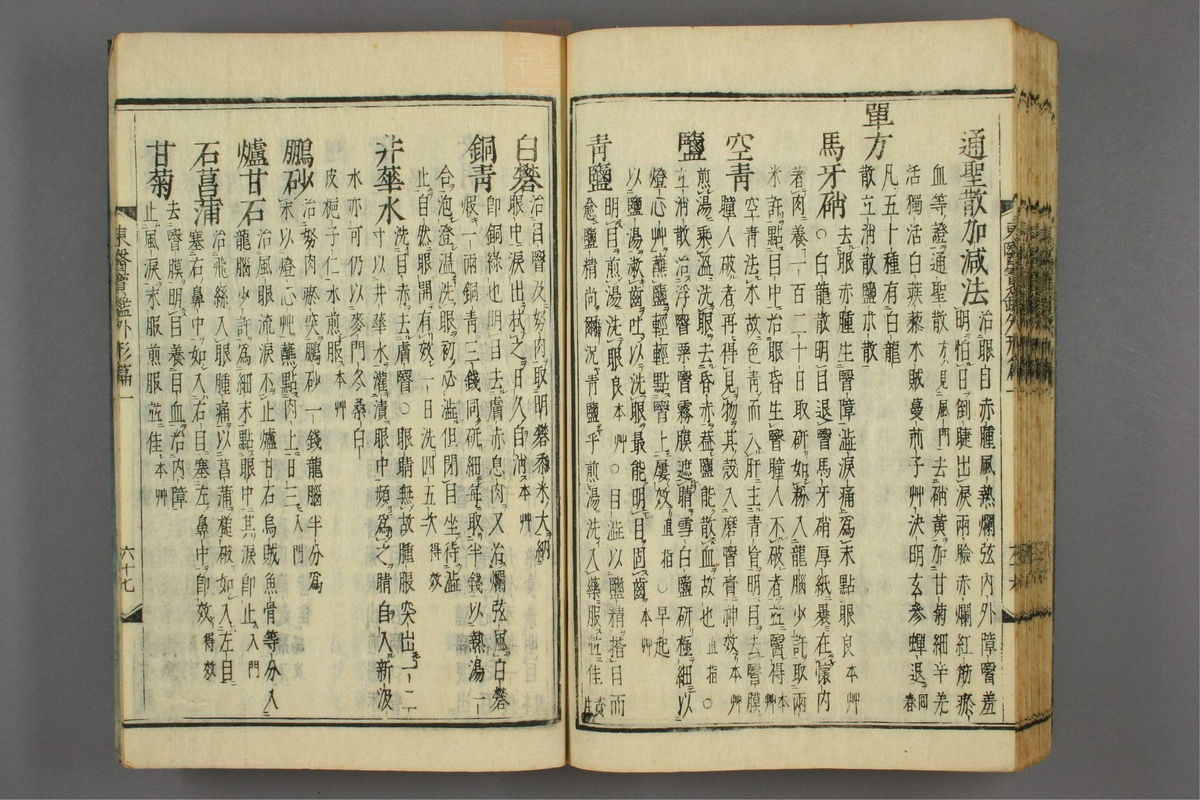 通聖散加減法 治眼目赤腫風熱爛弦內外障瞖羞
明怕日倒睫出淚兩瞼赤爛紅筋瘀
血等證通聖散方見風門去硝黃加甘菊細辛羌
活獨活白蒺藜木賊蔓荊子草決明玄參蟬退回春
單方 凡五十種有白龍
散立消散鹽朮散
馬牙硝 去眼赤腫生瞖障澁淚痛爲末點眼良本艸
○白龍散明目退瞖馬牙硝厚紙褁在懷內
著肉養一百二十日取硏如粉入龍腦少許取兩
米許點目中治眼昏生瞖瞳人不破者並瞖得本艸
空青 空青法木故色青而入肝主青盲明目去瞖膜
瞳人破者再得見物其殼入磨瞖膏神效本艸
鹽 煎湯乘溫洗眼去昏赤葢鹽能散血故也直指○
立消散治浮瞖粟瞖霧膜遮睛雪白鹽硏極細以
燈心艸蘸鹽輕輕點瞖上屢效直指○早起
以鹽湯漱齒吐以洗眼最能明目固齒本艸
青鹽 明目煎湯洗眼良本艸○目澁以鹽精揩目而
愈鹽精尚爾況青鹽乎煎湯洗入藥服並佳資
白礬 治目瞖及努肉取明礬黍米大納
眼中淚出拭之日久自消本艸
銅青 卽銅綠也明目去膚赤息肉又治爛弦風白礬
煆一兩銅青三錢同硏細每取半錢以熱湯一
合泡澄溫洗眼初必澁但閉目坐待澁
止自然眼開有效一日洗四五次得效
井華水 洗目赤去膚瞖○眼睛無故腫脹突出一二
寸以井華水灌漬眼中頻爲之睛自入新汲
水亦可仍以麥門冬桑白
皮梔子仁水煎服本艸
鵬砂 治努肉瘀突鵬砂一錢龍腦半分爲
末以燈心艸蘸點肉上日三入門
爐甘石 治風眼流淚不止爐甘石烏賊魚骨等分入
龍腦少許爲細末點眼中其淚卽止入門
石菖蒲 治飛絲入眼腫痛以菖蒲槌破如入左目
塞右鼻中如入右目塞左鼻中卽效得效
甘菊 去瞖膜明目養目血治內障
止風淚末服煎服並佳本艸
東醫寶鑑外形篇一
六十七